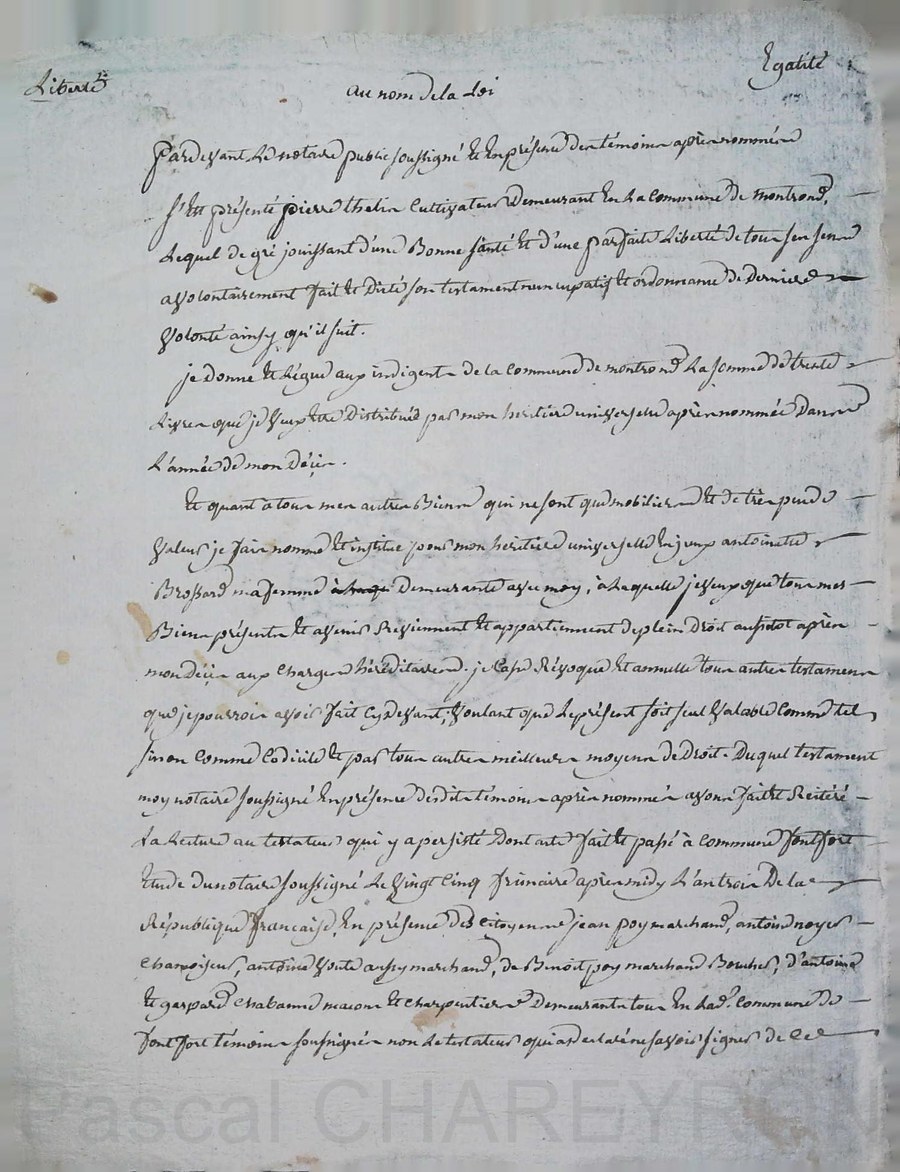 Liberté
Egalité
au nom de la Loi
Pardevant Le notaire public soussigné et En présence des témoins après nommés
s'est présenté pierre thelin Cultivateur Demeurant En La Commune de montrond,
Lequel de gré jouissant d'une Bonne santé et d'une parfaite Liberté de tous ses sens
a volontairement fait et Dicté son testament nuncupatif et ordonnance de Derniere
Volonté ainsy qu'il suit.
je donne et Légue aux indigents de la Commune de montrond La somme de trente
Livres que je veux être Distribuée par mon heritiere universelle après nommée Dans
L'année de mon Décès.
Et quant à tous mes autres Biens qui ne sont que mobiliers et de très peu de
Valeur je fais nomme et institue pour mon heritiere universelle antoinette
Brossard ma femme Demeurante avec moy, à Laquelle je veux que tous mes
Biens présents et avenir Reviennent et appartiennent de plein Droit aussitot après
mon Décès aux Charges héréditaires. je Casse Révoque et annulle tous autres testamens
que je pourrois avoir fait Cy devant, Voulant que Le présent soit seul Valable Comme tel
sinon Comme Codicile et par tous autres meilleurs moyens de Droit. Duquel testament
moy notaire soussigné En présence desdits témoins après nommés avons fait et Reitéré
La Lecture au testateur qui y a persisté Dont acte fait et passé à Commune fontfort
Etude du notaire soussigné Le Vingt Cinq frimaire après midy L'an trois De la
République française, En présence des Citoyens jean poy marchand, antoine noyer
Chamoiseur, antoine Voute aussy marchand, de Benoit poy marchand Boucher, d'antoine
et gaspard Chabanne macon et Charpentier Demeurants tous En Lad. Commune de
font fort témoins soussignés non Le testateur qui a déclaré ne savoir signer de Ce
Pascal CHAREYRON